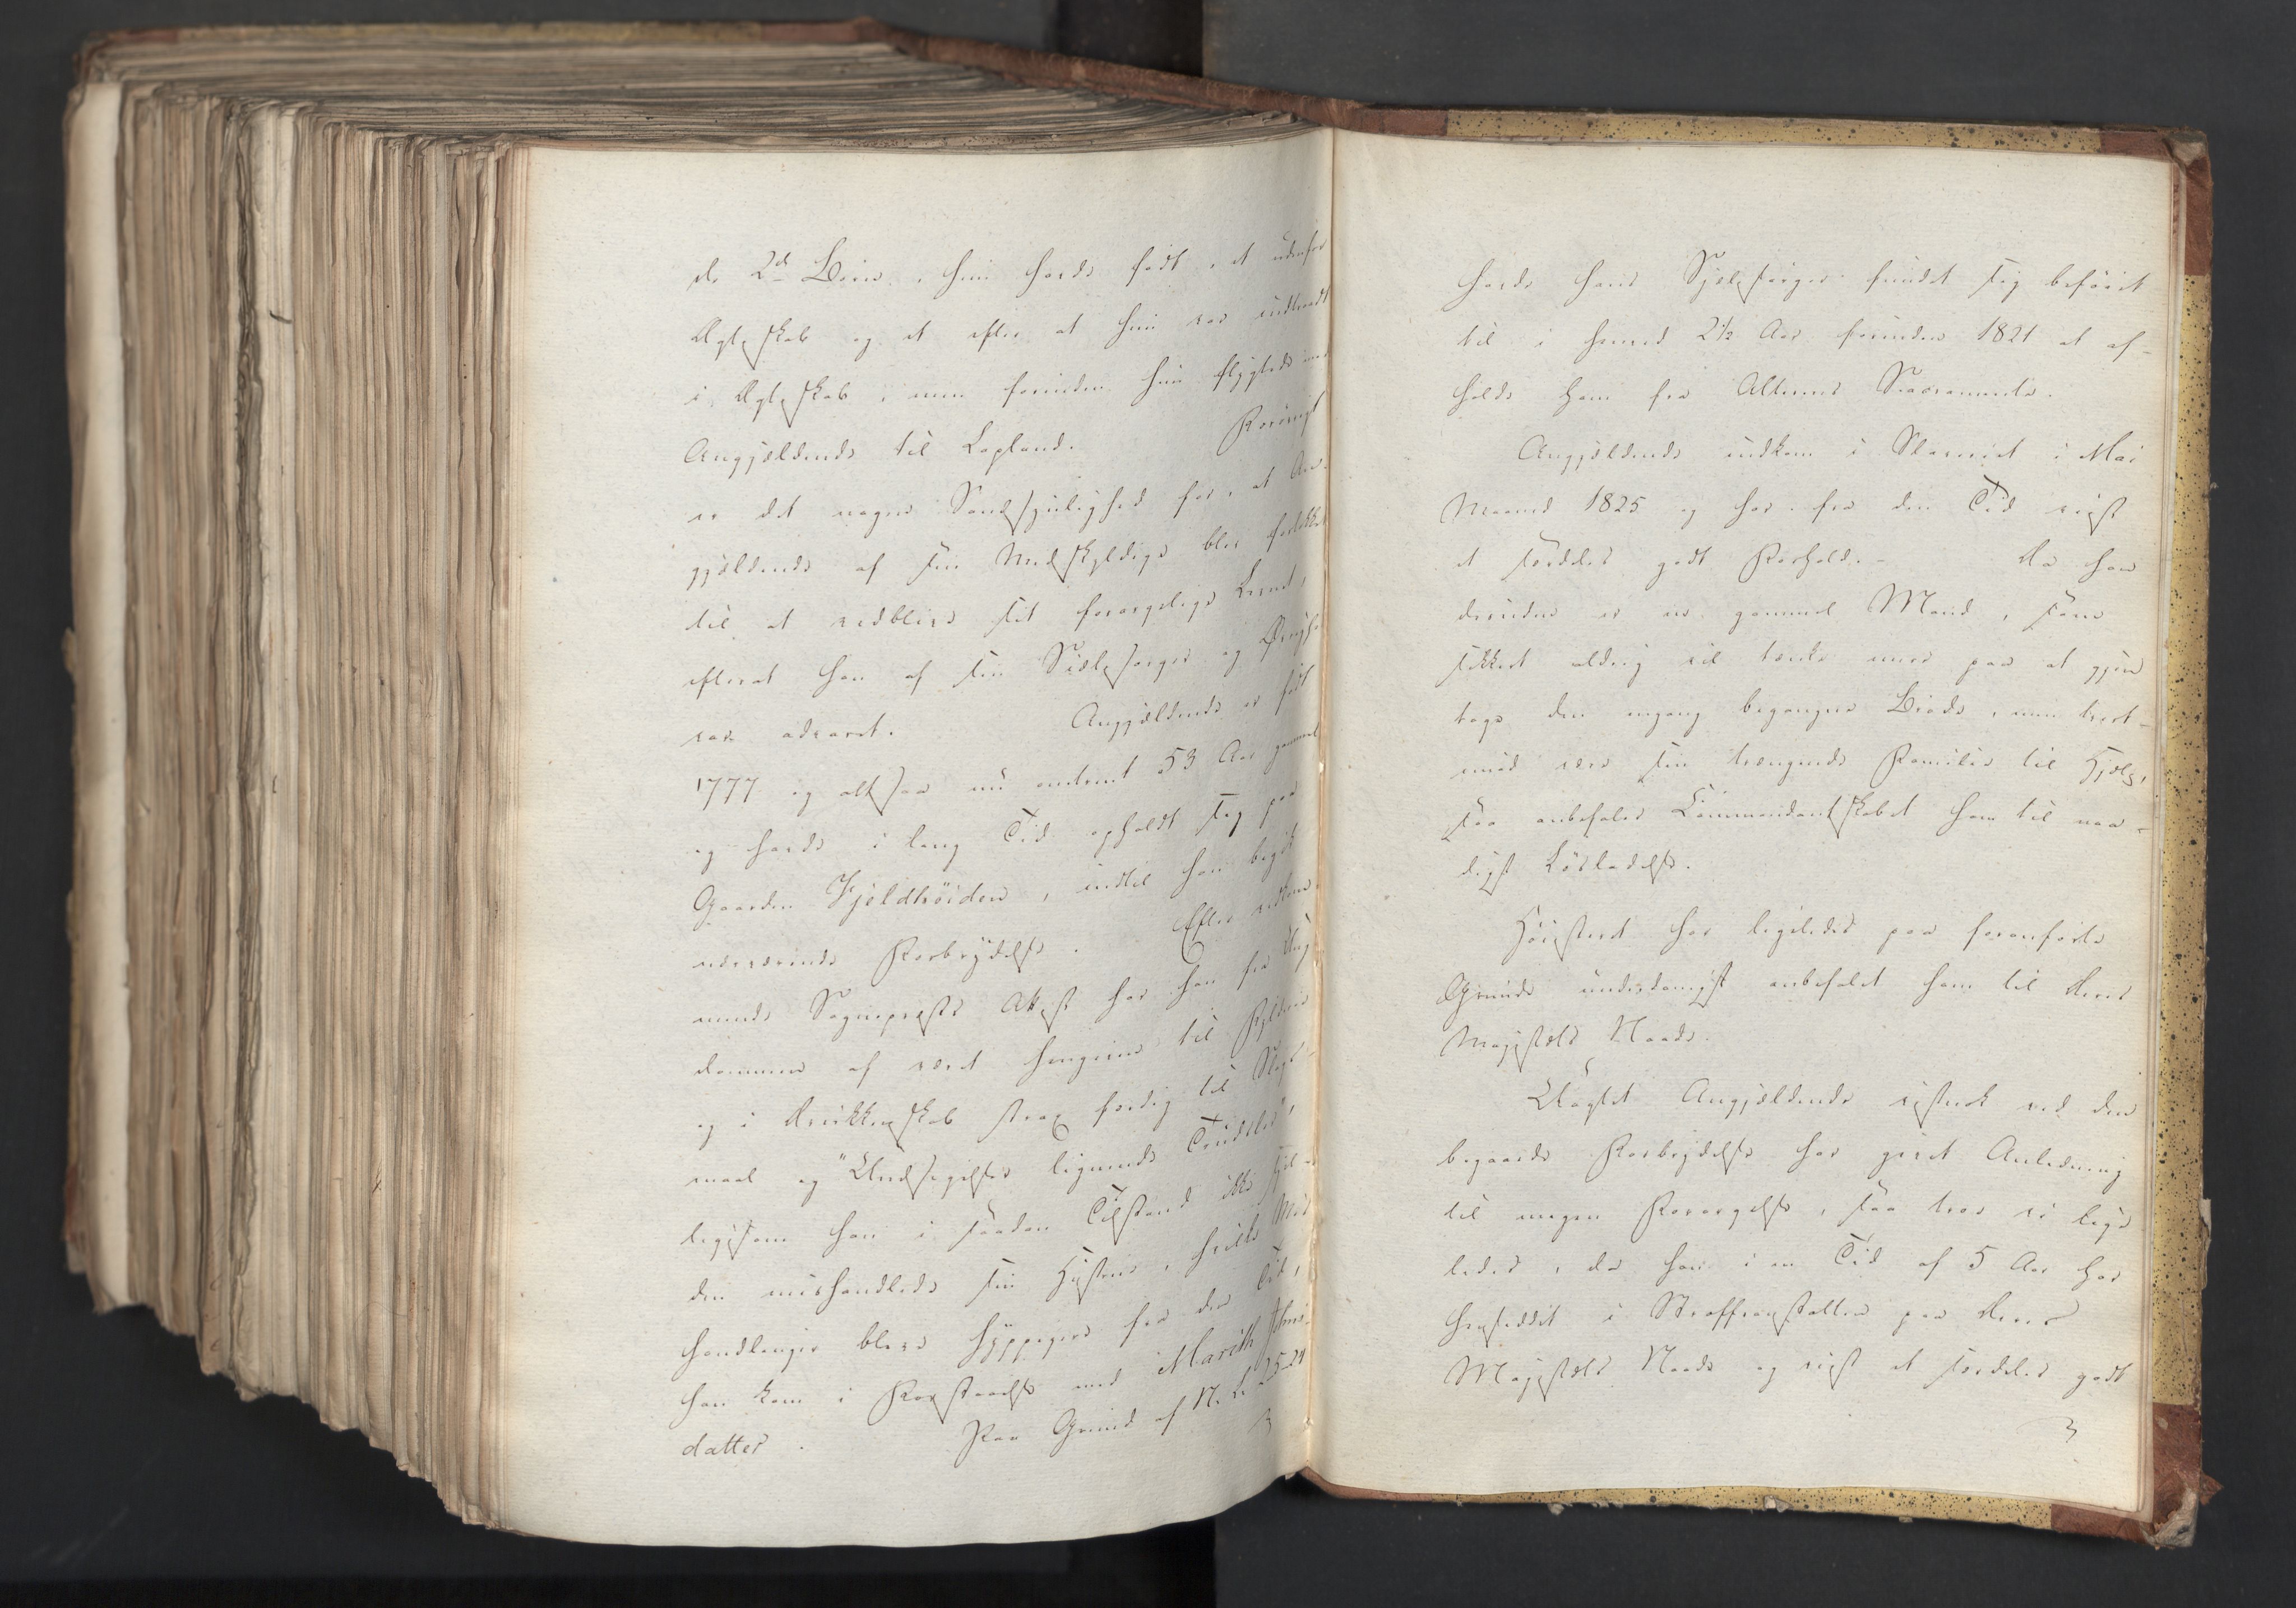 de 2de Børn, hun havde født, et udenfor
Ægteskab og et efter at hun var indtraadt
i Ægteskab, men forinden hun flygtede med
Angjeldende til Lapland. Forøvrigt
er det megen Sandsynlighed for, at An-
gjældende af sin Medskyldige blev forlokket
til at vedblive sit forargelige Levnet,
efterat han af sin Siælesørger og Øvrighed
var advaret. Angjældende er født
1777 og altsaa nu omtrent 53 Aar gammel
og havde i lang Tid opholdt sig paa
Gaarden Fjeldhöiden, indtil han begik
nærværende Forbrydelse. Efter vedkom-
mende Sognepræsts Attest har han fra Ung-
dommen af været hengiven til Fylderie
og i Drukkenskab strax færdig til Slags-
maal og "Undsigelser lignende Trudsler",
ligesom han i saadan Tilstand ikke sjel-
den mishandlede sin Hustrue, hvilke Mis-
handlinger bleve hyppigere fra den Tid,
han kom i Forstaaelse med Marith Johns-
datter. Paa Grund af N. L. 2-5-24
havde hans Sjælesørger fundet sig beföiet
til i henved 2½ Aar forinden 1821 at af-
holde ham fra Alterens Sacramente.
Angjældende indkom i Slaveriet i Mai
Maaned 1825 og har fra den Tid viist
et særdeles godt Forhold. Da han
desuden er en gammel Mand, som
sikkert aldrig vil tænke meer paa at gjen-
tage den engang begangne Brøde, men tvert-
imod være sin trængende Familie til Hjælp,
saa anbefaler Commandantskabet ham til naa-
digst Løsladelse.
Höiesteret har ligeledes paa foranførte
Grunde underdanigst anbefalet ham til Deres
Majestæts Naade.
Uagtet Angjældende vistnok ved den
begaaede Forbrydelse har givet Anledning
til megen Forargelse, saa troe vi lige-
ledes, da han i en Tid af 5 Aar har
hensiddet i Straffeanstalten paa Deres
Majestæts Naade og viist et særdeles godt